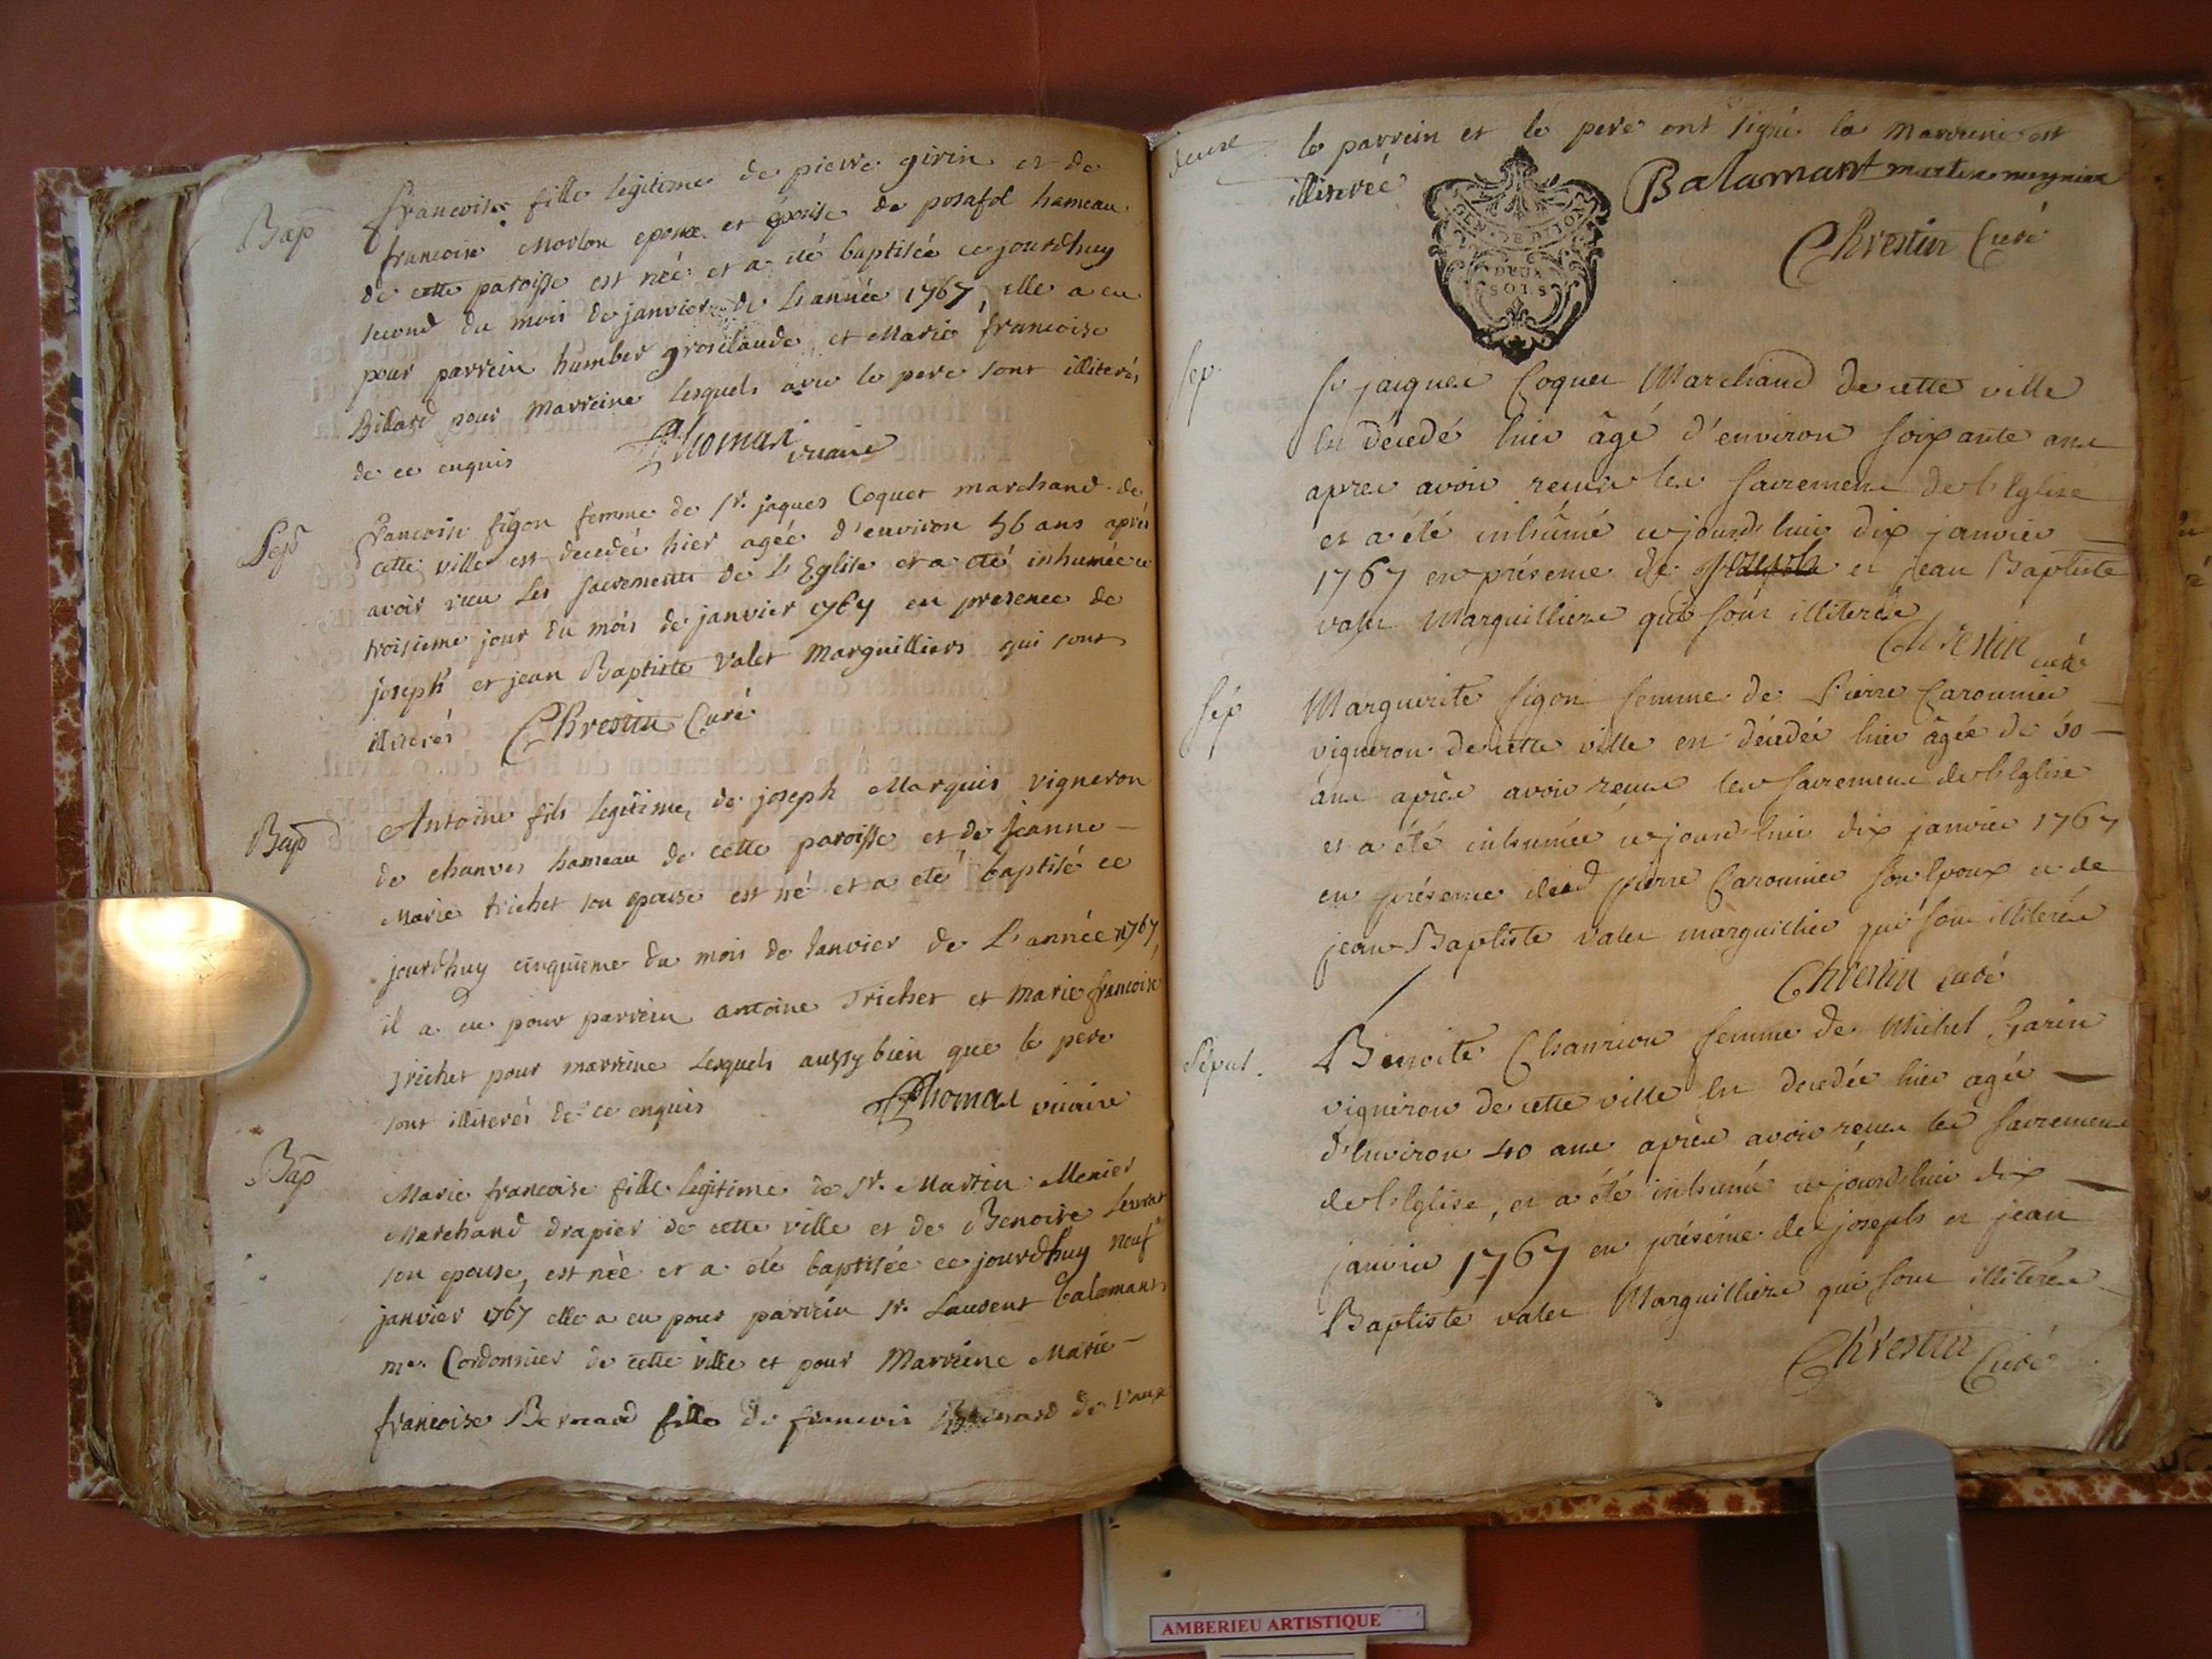 Bap
francoise fille legitime de pierre girin et de
francoise Morlon epouse et épouse de posafol hameau
de cette paroisse est néé et a été baptiséé ce jourdhuy
second du mois de janvier de L'année 1767, elle a eu
pour parrein humber grosclaude et Marie francoise
Billard pour Marreine Lesquels avec le pere sont illiterés
de ce enquis Thomas vicaire
Sep
francoise figon femme de Sr. jaques Coquet marchand de
cette ville est decedéé hier agéé d'environ 56 ans aprés
avoir reçu Les sacrements de L'Eglise et a eté inhuméé ce
troisieme jour du mois de janvier 1767 en presence de
joseph et jean Baptiste Valet Marguilliers qui sont
illiterés Chrestin Curé
Bap
Antoine fils Legitime de joseph Marquis vigneron
de chanves hameau de cette paroisse et de jeanne
Marie trichet son epouse est né et a eté baptisé ce
jourdhuy cinquieme du mois de Janvier de L'année 1767,
il a eu pour parrein antoine Trichet et Marie francoise
Trichet pour marreine Lesquels aussy bien que le pere
sont illiterés de ce enquis Thomas vicaire
Bap
Marie francoise fille legitime de Sr. Martin Menier
Marchand drapier de cette ville et de Benoite Levrat
son epouse, est néé et a eté baptiséé ce jourdhuy neuf
janvier 1767 elle a eu pour parrein Sr. Laurent balamant
me. Cordonnier de cette ville et pour Marreine Marie
francoise Bernard fille de francois Bernard de Vaux
deux
le parrein et le pere ont signé la Marreine est
illiteréé Balamant martin meynier
Chrestin Curé
GEN. DE DIJON
DEUX
SOLS
Sep.
Sr jacques Coquet Marchand de cette ville
est décedé hier âgé d'environ soixante ans
apres avoir recus les sacremens de l'Eglise
et a été inhûmé cejourd'hui dix janvier
1767 en présence de joseph et jean Baptiste
valet Marguilliers qui sont illiterés
Chrestin curé
Sép
Marguerite figon femme de Pierre Caronnier
vigneron de cette ville est décedée hier âgée de 50
ans après avoir recus les sacremens de l'Eglise
et a été inhumée cejourd'hui dix janvier 1767
en présence dud pierre Caronnier son Epoux et de
jean Baptiste valet marguillier qui sont illiterés
Chrestin curé
Sépul.
Benoite Chanrion femme de Michel Garin
vigneron de cette ville est decedée hier agée
d'Environ 40 ans après avoir reçus les sacremens
de l'Eglise, et a été inhumé cejourd'hui dix
janvier 1767 en présence de joseph et jean
Baptiste valet Marguilliers qui sont illiterés
Chrestin Curé
AMBERIEU ARTISTIQUE